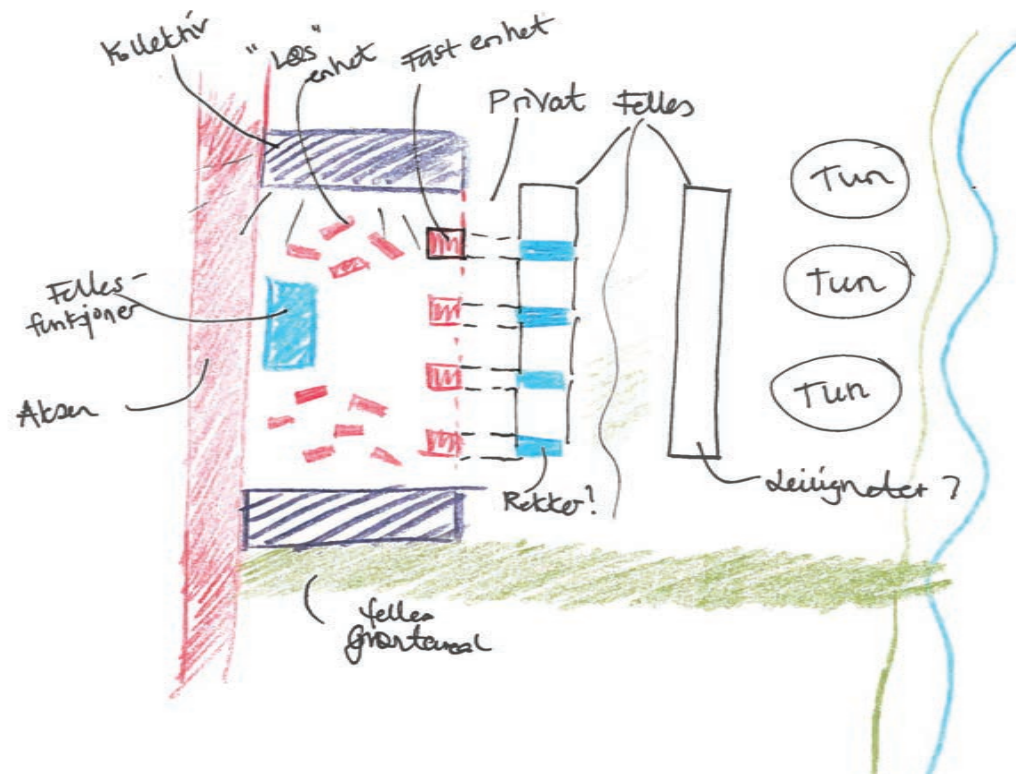 Kollektiv
"Løs"
enhet
Fast enhet
Privat
Felles
Tun
Tun
Tun
Felles-
funksjoner
Aksen
Rekker?
Leiligheter?
felles
Grøntareal